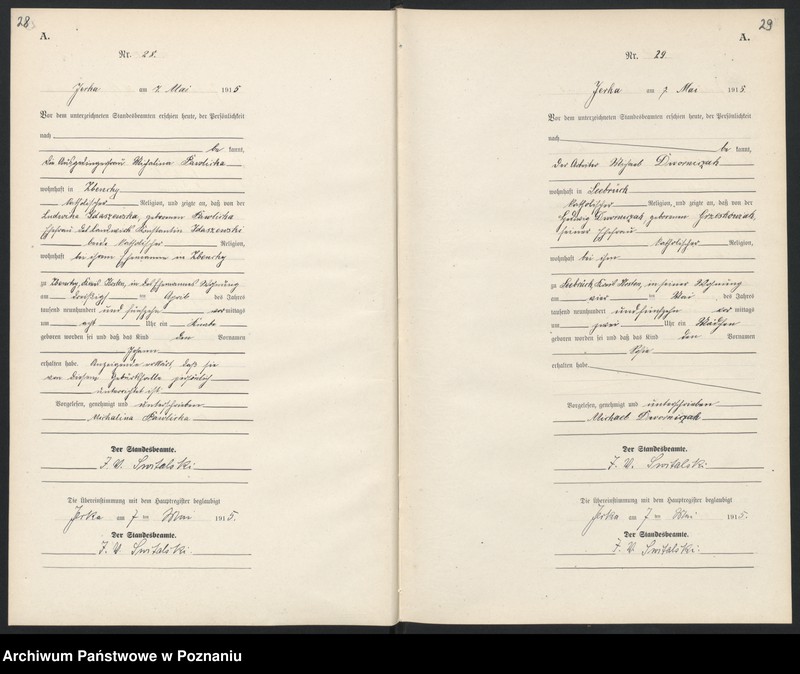 28
A.
Nr. 28.
Jerka am 7. Mai 1915
Vor dem unterzeichneten Standesbeamten erschien heute, der Persönlichkeit
nach
be kannt,
die Ausgedingerfrau Michalina Pawlicka
wohnhaft in Zbenchy
katholischer Religion, und zeigte an, daß von der
Ludwika Idaszewska, geborenen Pawlicka
Ehefrau des Landwirth Konstantin Idaszewski
beide katholischer Religion,
wohnhaft bei ihrem Ehemanne in Zbenchy
zu Zbenchy, Kreis Kosten, in des Ehemannes Wohnung
am dreißigsten April des Jahres
tausend neunhundert und fünfzehn vormittags
um acht Uhr ein Knabe
geboren worden sei und daß das Kind den Vornamen
Johann
erhalten habe. Anzeigende erklärt, daß sie
von diesem Geburtsfalle persönlich
unterrichtet ist.
Vorgelesen, genehmigt und unterschrieben
Michalina Pawlicka
Der Standesbeamte.
J. V. Switalski
Die Übereinstimmung mit dem Hauptregister beglaubigt
Jerka am 7 ten Mai 1915.
Der Standesbeamte.
J. V. Switalski
29
A.
Nr. 29
Jerka am 7. Mai 1915.
Vor dem unterzeichneten Standesbeamten erschien heute, der Persönlichkeit
nach
be kannt,
der Arbeiter Michael Dwornizak
wohnhaft in Seebrück
katholischer Religion, und zeigte an, daß von der
Hedwig Dwornizak, geborenen
seiner Ehefrau
katholischer Religion,
wohnhaft bei ihm
zu Seebrück, Kreis Kosten, in seiner Wohnung
am vier ten Mai des Jahres
tausend neunhundert und fünfzehn vormittags
um zwei Uhr ein Mädchen
geboren worden sei und daß das Kind den Vornamen
Sofie
erhalten habe.
Vorgelesen, genehmigt und unterschrieben
Michael Dwornizak
Der Standesbeamte.
J. V. Switalski
Die Übereinstimmung mit dem Hauptregister beglaubigt
Jerka am 7 ten Mai 1915.
Der Standesbeamte.
J. V. Switalski
Archiwum Państwowe w Poznaniu